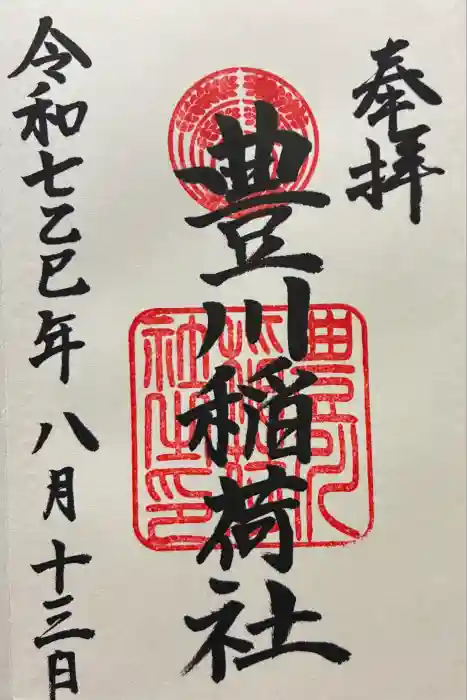 奉拝
豊川稲荷社
令和七乙巳年 八月十三日